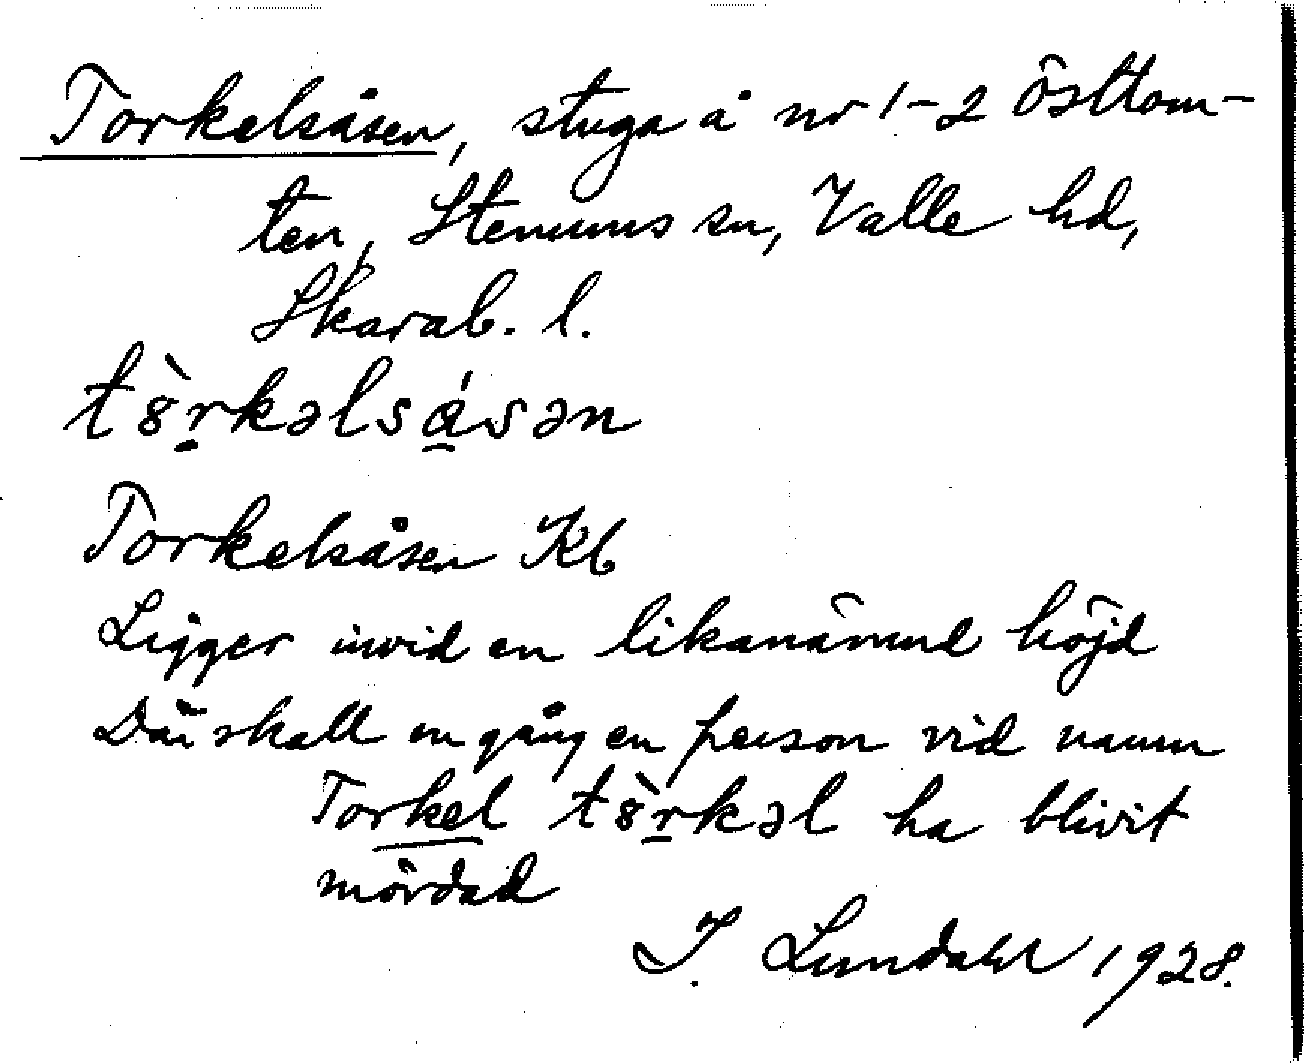 Torkelsåsen, stuga å nr 1-2 Östtom-
ten, Stenums sn, Valle hd,
Skarab. l.
t8̀r̲kəlsá̲sən
Torkelsåsen Kb
Ligger invid en likanämnd höjd
Där skall en gång en person vid namn
Torkel t8̀r̲kəl ha blivit
mördad
I. Lundahl 1928.